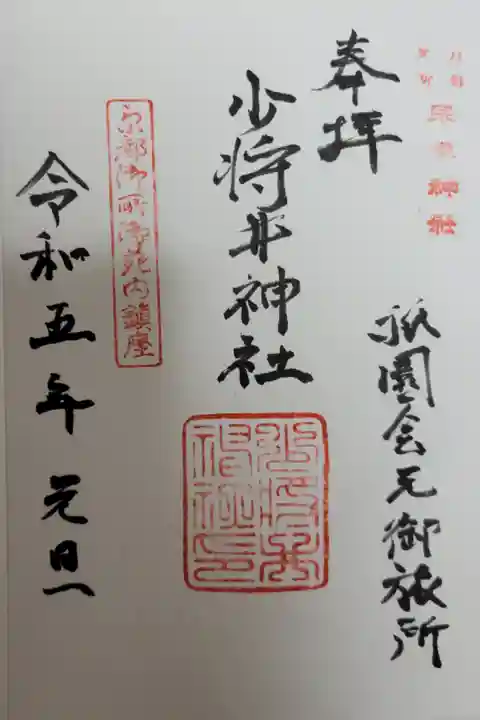 京都
宗像神社
奉拝
祇園会元御旅所
少将井神社
少将井神社印
京都御所御苑内鎮座
令和五年元旦